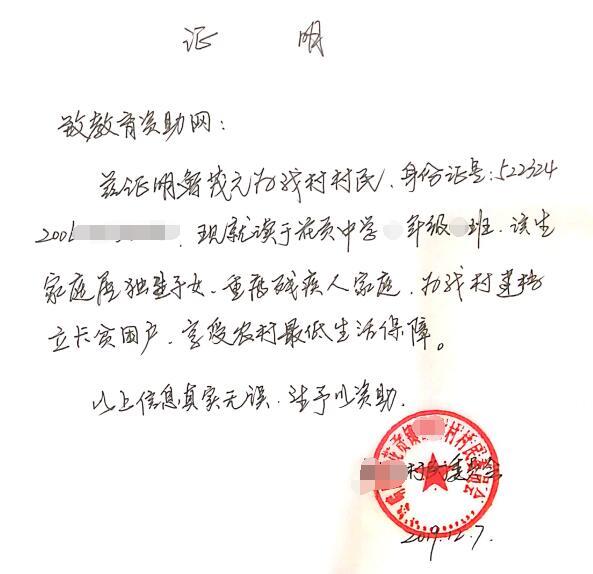 证 明
致教育资助网：
兹证明鲁茂元为我村村民，身份证号：522324
2006 ，现就读于花贡中学 年级 班，该生
家庭属独生子女、重病残疾人家庭，为我村建档
立卡贫困户，享受农村最低生活保障。
以上信息真实无误，请予以资助。
花贡镇 村村民委员会
村民委员会
2019.12.7.